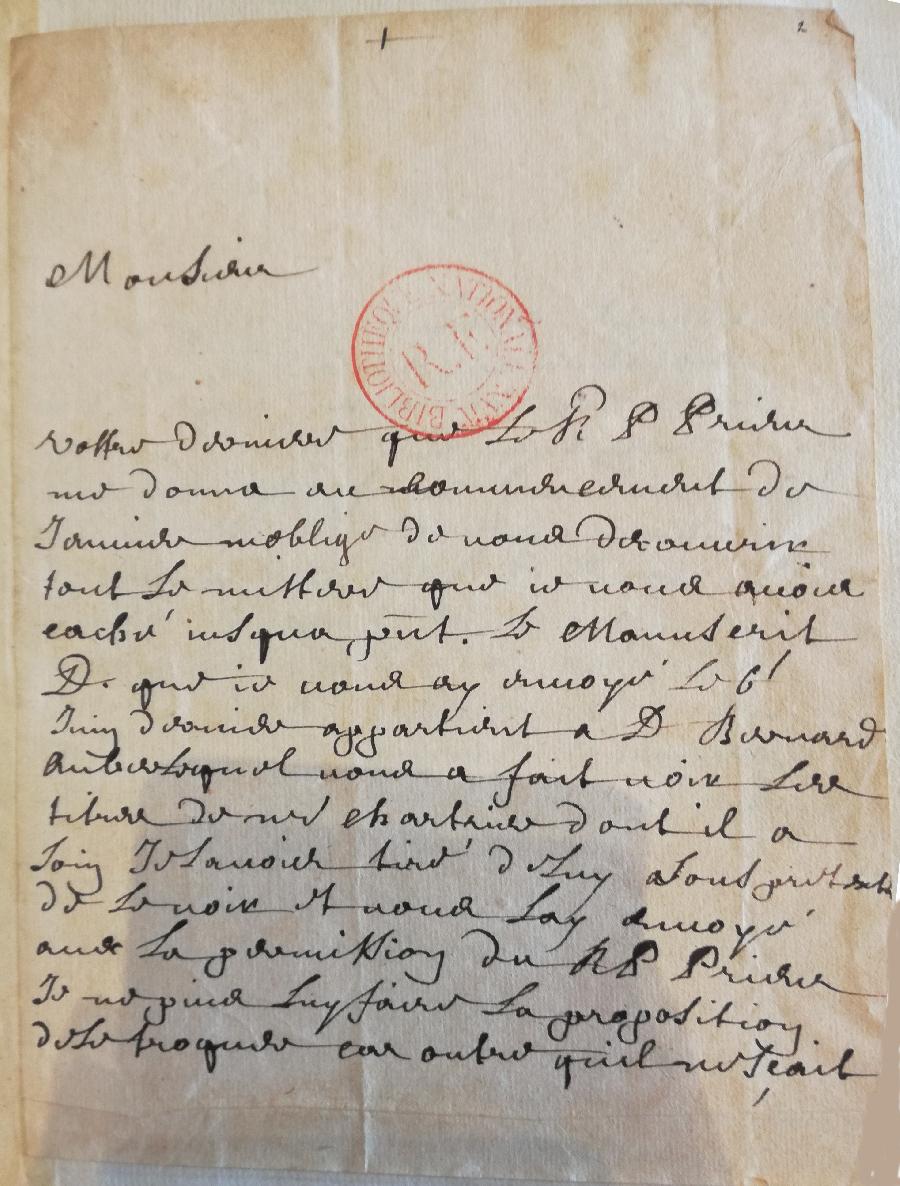 2
Monsieur
BIBLIOTHEQUE NATIONALE MSS
R F
vostre derniere que Le R P Prieur
me donna au commencement de
Januier moblige de vous decouurir
tout Le mistere que ie vous auois
caché iusqua pñt. Le Manuscrit
D. que ie vous ay enuoyé Le 6e
Juin dernier appartient a D Bernard
Aubert Lequel vous a fait voir Les
titres de nré chartrier dont il a
soin Je Lauois tiré de Luy a sous pretexte
de Le voir et vous Lay enuoyé
auec La permission du R P Prieur
Je ne puis Luy faire La proposition
de Le troquer car outre quil ne sçait